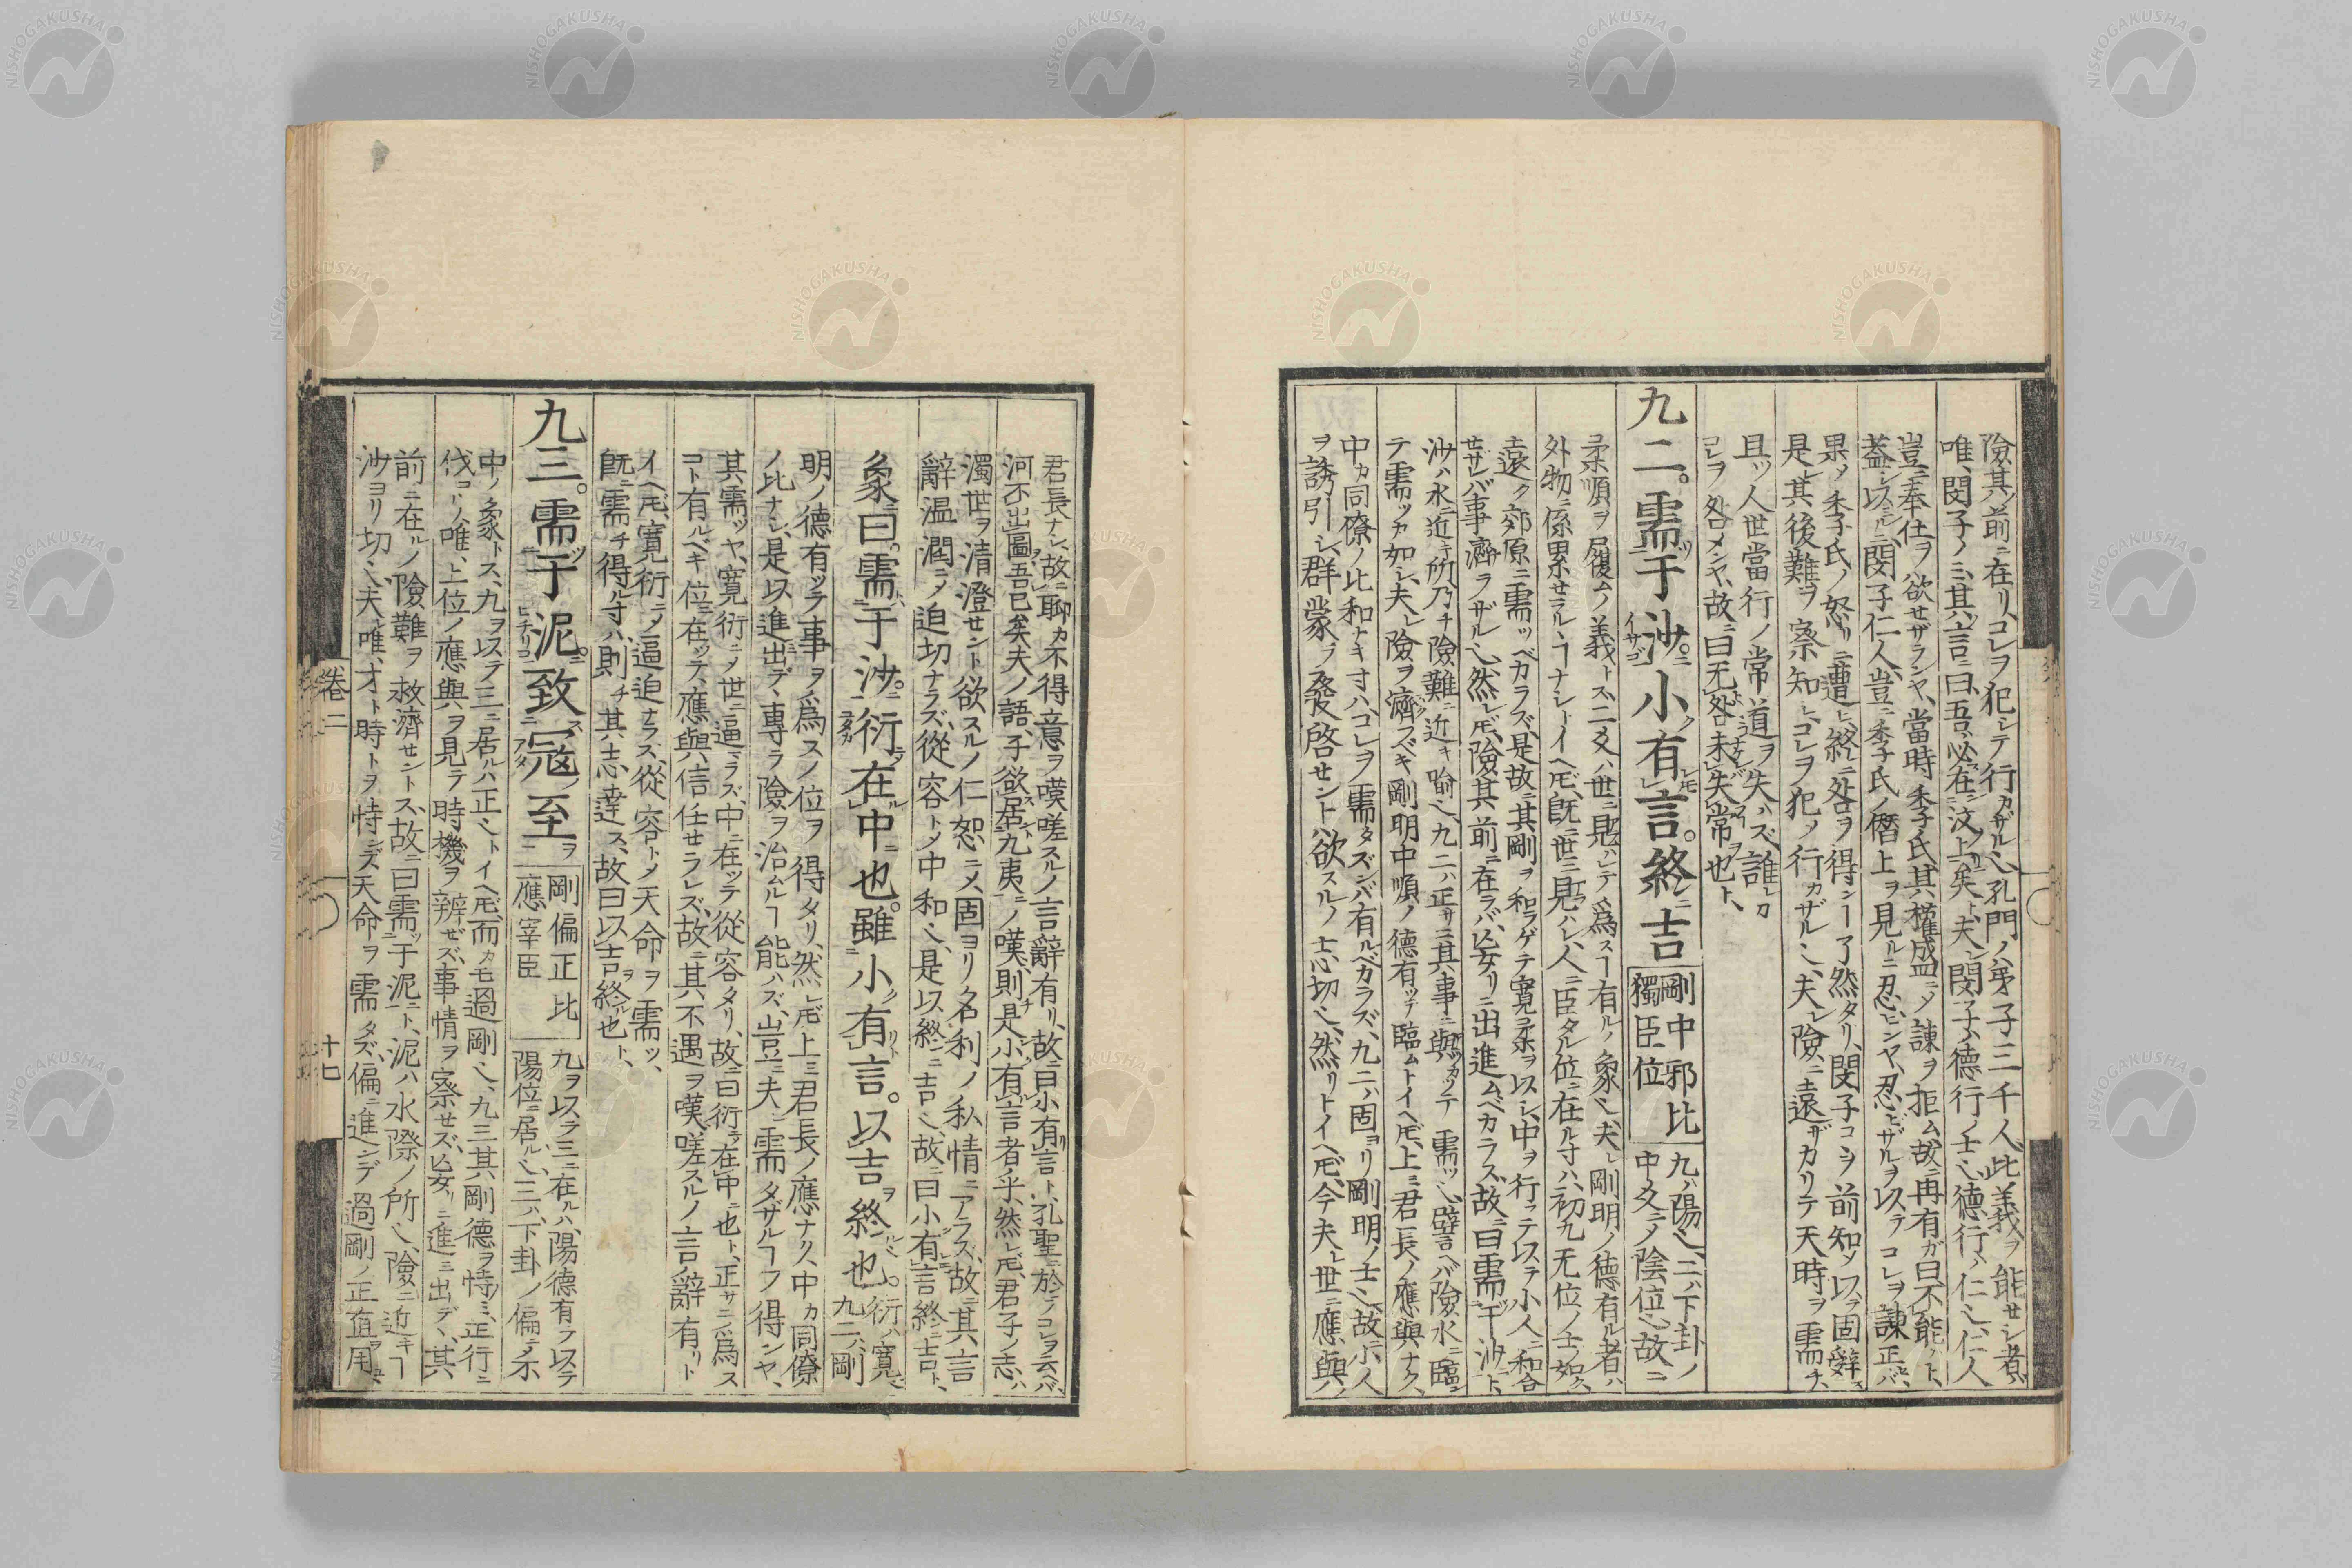 險其前ニ在リ、コレヲ犯シテ行カザル也、孔門ノ弟子三千人、此義ヲ能セシ者、
唯、閔子ノミ、其言ニ曰、吾必在汶上矣ト、夫レ閔子ハ德行ノ士也、德行ハ仁也、仁人
豈ニ奉仕ヲ欲セザランヤ、當時季子氏、其權盛ニメ諌ヲ拒ム、故ニ再有ガ曰不能ト、
蓋シ以ミルニ閔子仁人、豈ニ季子氏ノ僭上ヲ見ルニ忍ビンヤ、忍ビザルヲ以テコレヲ諌正セバ、
果メ季氏ノ怒リニ遭ヒ、終ニ咎ヲ得ンヿ了然タリ、閔子コレヲ前知メ以テ固辭ス、
是レ其後難ヲ察知シ、コレヲ犯メ行カザル也、夫レ險ニ遠ザカリテ天時ヲ需チ、
且ツ人世當行ノ常道ヲ失ハズ、誰レカ
コレヲ咎メンヤ、故ニ曰无咎未失常也ト、
九二。需于沙。小有言。終吉
剛中邪比
獨臣位
九ハ陽也、二ハ下卦ノ
中爻ニメ陰位也、故ニ
柔順ヲ履ムノ義トス、二爻ハ世ニ見ハレテ爲スヿ有ルノ象也、夫レ剛明ノ德有ル者ハ
外物ニ係累セラルヽヿナシトイヘ𪜈、既ニ世ニ見ハレ、人ニ臣タル位ニ在ル寸ハ、初九无位ノ士ノ如ク、
遠ク郊原ニ需ツベカラズ、是故ニ其剛ヲ和ラゲテ寛柔ヲ以シ、中ヲ行フテ以テ小人ニ和合
セザレバ事濟ラザル也、然レ𪜈、險其前ニ在ラバ、妄リニ出進ムベカラズ、故ニ曰需于沙ト、
沙ハ水ニ近キ所、乃チ險難ニ近キ喩也、九二ハ正サニ其事ニ與カツテ需ツ也、譬ヘバ險水ニ臨ン
テ需ツガ如シ、夫レ險ヲ濟フベキ剛明中順ノ德有ッテ臨ムトイヘ𪜈、上ミ君長ノ應與ナク、
中カ同僚ノ比和ナキ寸ハ、コレヲ需タズンバ有ルベカラズ、九二ハ固ヨリ剛明ノ士也、故ニ小人
ヲ誘引シ、群蒙ヲ發啓セント欲スルノ志切也、然リトイヘ𪜈、今夫レ世ニ應與ノ
君長ナシ、故ニ聊カ不得意ヲ嘆嗟スルノ言辭有リ、故ニ曰小有言ト、孔聖ニ於テコレヲ云ヘバ、
河不出圖、吾已矣夫ノ語、子欲居九夷ノ嘆、則チ是小有言者乎、然レ𪜈、君子ノ志ハ
濁世ヲ清澄セント欲スルノ仁恕ニメ、固ヨリ名利ノ私情ニアラズ、故ニ其言
辭温潤ニメ迫切ナラズ、從容トメ中和也、是以終ニ吉也、故ニ曰小有言終吉ト、
象曰。需于沙。衍在中也。雖小有言。以吉終也。
衍ハ寛也、
九二ハ剛
明ノ德有ッテ事ヲ爲スノ位ヲ得タリ、然レ𪜈上ミ君長ノ應ナク、中カ同僚
ノ比ナシ、是以進出デ、專ラ險ヲ治ムルヿ能ハズ、豈ニ夫レ需タザルヿヲ得ンヤ、
其需ツヤ、寛衍ニメ世ニ逼ラズ、中ニ在ッテ從容タリ、故ニ曰衍在中也ト、正サニ爲ス
コト有ルベキ位ニ在ッテ、應與信任セラレズ、故ニ其不遇ヲ嘆嗟スルノ言辭有リト
イヘ𪜈、寛衍ニメ逼迫ナラズ、從容トメ天命ヲ需ツ、
既ニ需チ得ル寸ハ、則チ其志達ス、故曰以吉終也ト、
九三。需于泥。致寇至
剛偏正比
應宰臣
九ヲ以テ三ニ在ルハ、陽德有ッテ以テ
陽位ニ居ル也、三ハ下卦ノ偏ニメ不
中ノ象トス、九ヲ以テ三ニ居ルハ正也トイヘ𪜈、而カモ過剛也、九三其剛德ヲ恃ミ、正行ニ
伐コリ、唯、上位ノ應與ヲ見テ時機ヲ辨ゼズ、事情ヲ察セズ、妄リニ進ミ出デヽ、其
前ニ在ルノ險難ヲ救濟セントス、故ニ曰需于泥ト、泥ハ水際ノ所也、險ニ近キヿ
沙ヨリ切也、夫レ唯、才ト時トヲ恃ンデ、天命ヲ需タズ、偏ニ進ンデ過剛ノ正直ヲ用ユ
卷二
十七
NISHOGAKUSHA